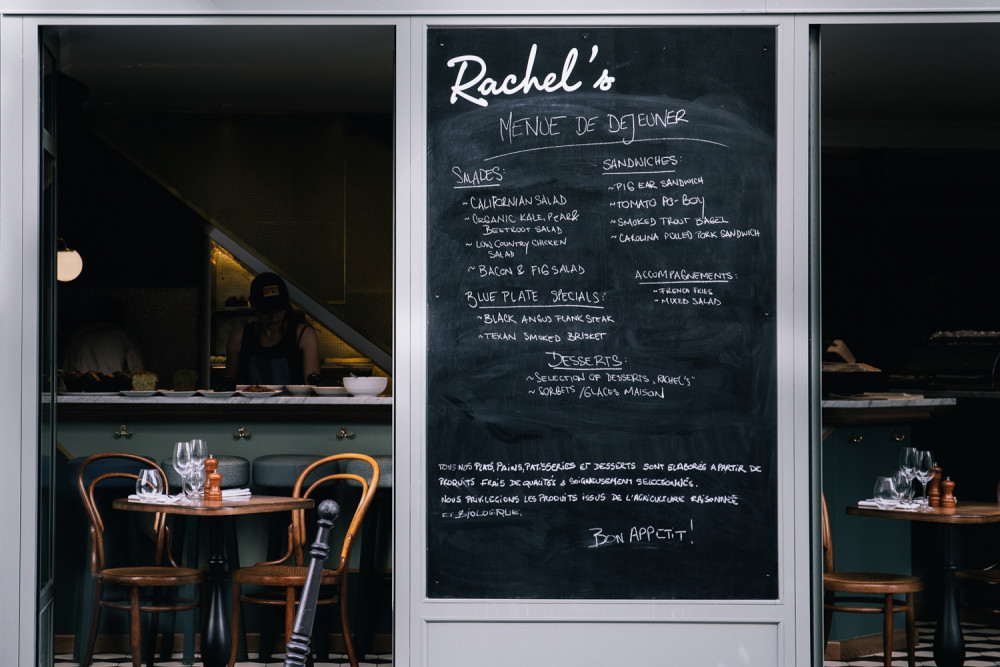 Rachel's
MENUE DE DEJEUNER
SALADES:
~ CALIFORNIAN SALAD
~ ORGANIC KALE, PEAR &
BEETROOT SALAD
~ LOW COUNTRY CHICKEN
SALAD
~ BACON & FIG SALAD
BLUE PLATE SPECIALS:
~ BLACK ANGUS FLANK STEAK
~ TEXAN SMOKED BRISKET
SANDWICHES:
~ PIG EAR SANDWICH
~ TOMATO PO-BOY
~ SMOKED TROUT BAGEL
~ CAROLINA PULLED PORK SANDWICH
ACCOMPAGNEMENTS:
~ FRENCH FRIES
~ MIXED SALAD
DESSERTS:
~ SELECTION OF DESSERTS "RACHEL'S"
~ SORBETS / GLACES MAISON
TOUS NOS PLATS, PAINS, PATISSERIES ET DESSERTS SONT ELABORÉS A PARTIR DE
PRODUITS FRAIS DE QUALITÉS & SOIGNEUSEMENT SELECTIONNÉS.
NOUS PRIVILEGIONS LES PRODUITS ISSUS DE L'AGRICULTURE RAISONNÉE
ET BIOLOGIQUE.
BON APPETIT!